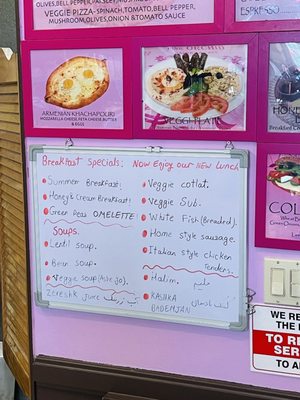 BELL PEPPER, OLIVES,
VEGGIE PIZZA-SPINACH, TOMATO, BELL PEPPER,
MUSHROOM, OLIVES, ONION & TOMATO SAUCE
ESPRESSO
ARMENIAN KHACHAPOURI
MOZZARELLA CHEESE, FETA CHEESE, BUTTER
& EGGS
VEGGIE PLATE
Breakfast Specials:
Summer Breakfast:
Honey & Cream Breakfast!
Green Peas OMELETTE
Soups.
Lentil Soup.
Bean Soup.
Veggie Soup (Ashe Jo).
Zereshk Juice آب زرشک
Now Enjoy our New Lunch.
Veggie cotlat.
Veggie Sub.
White Fish (Breaded).
Home style sausage.
Italian style chicken
Tenders.
Halim. حلیم
KASHKA
BADEMJAN کشک بادمجان
WE RE
THE R
TO RE
SER
TO A